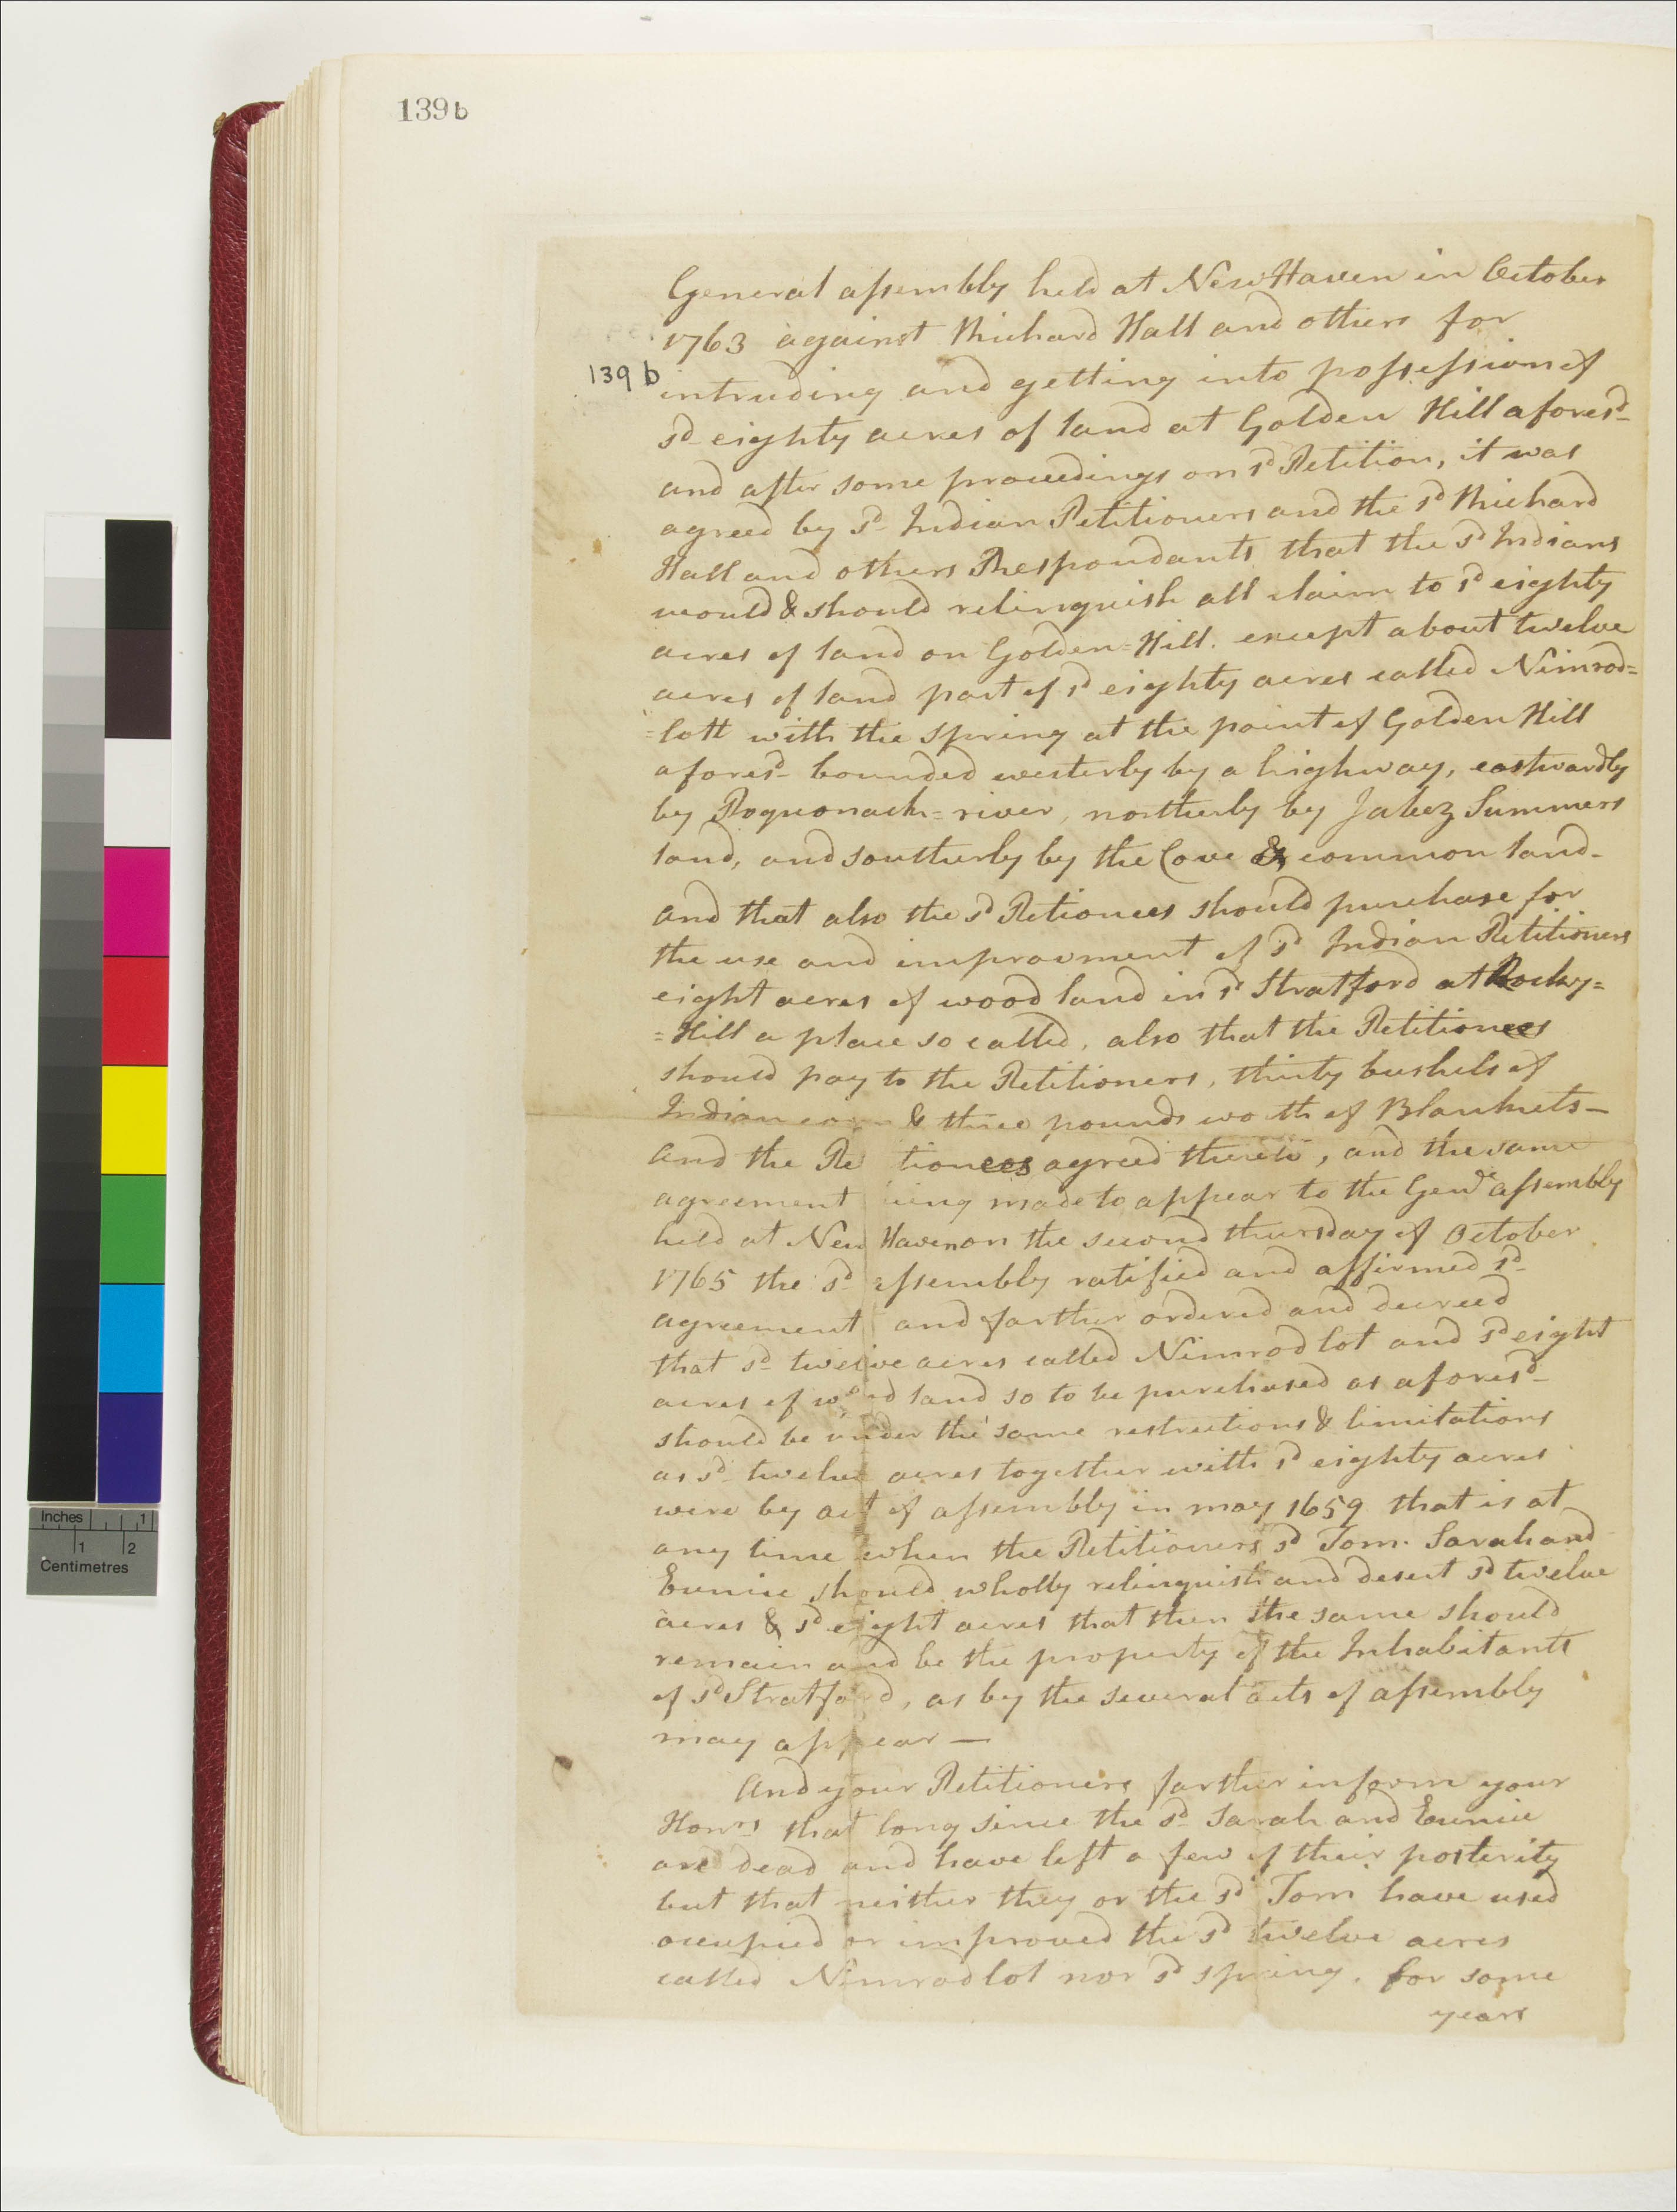 139b
General assembly held at New Haven in October
1763 against Richard Hall and others for
139 b
intruding and getting into possession of
sd eighty acres of land at Golden Hill aforesd
and after some proceedings on sd Petition, it was
agreed by sd Indian Petitioners and the sd Richard
Hall and others Respondants that the sd Indians
would & should relinquish all claim to sd eighty
acres of land on Golden=Hill. except about twelve
acres of land part of sd eighty acres called Nimrod=
=lott with the spring at the point of Golden Hill
aforesd bounded westerly by a highway, eastwardly
by Poquonack=river, northerly by Jabez Summers
land, and southerly by the Cove & common land-
and that also the sd Petionees should purchase for
the use and improvment of sd Indian Petitioners
eight acres of wood land in sd Stratford at Rocky=
=Hill a place so called, also that the Petitionees
should pay to the Petitioners, thirty bushels of
Indian corn & three pounds worth of Blankets—
and the Pe tionees agreed thereto, and the same
agreement ing made to appear to the Genl assembly
held at New Haven on the second thursday of October
1765 the sd assembly ratified and affirmed sd
agreement and farther ordered and decreed
that sd twelve acres called Nimrod lot and sd eight
acres of wood land so to be purchased as aforesd
should be under the same restrictions & limitations
as sd twelve acres together with sd eighty acres
were by act of assembly in may 1659 that is at
any time when the Petitioners sd Tom. Sarah and
Eunice should wholly relinquish and desert sd twelve
acres & sd eight acres that then the same should
remain and be the property of the Inhabitants
of sd Stratford, as by the several acts of assembly
may appear —
And your Petitioners farther inform your
Honrs that long since the sd Sarah and Eunice
are dead and have left a few of their posterity
but that neither they or the sd Tom have used
occupied or improved the sd twelve acres
called Nimrod lot nor sd spring. for some
years
Inches 1
1 2
Centimetres